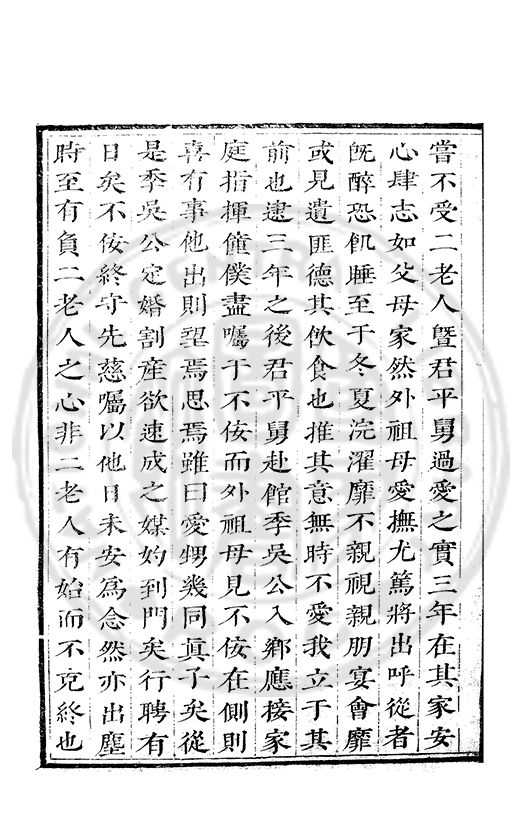 嘗不受二老人曁君平舅過愛之實三年在其家安
心肆志如父母家然外祖母愛撫尤篤將出呼從者
旣醉恐飢睡至于冬夏浣濯靡不親視親朋宴會靡
或見遺匪德其飲食也推其意無時不愛我立于其
前也逮三年之後君平舅赴館季吳公入鄉應接家
庭指揮僮僕盡囑于不佞而外祖母見不佞在側則
喜有事他出則望焉思焉雖曰愛甥幾同眞子矣從
是季吳公定婚割産欲速成之媒妁到門矣行聘有
日矣不佞終守先慈囑以他日未安爲念然亦出塵
時至有負二老人之心非二老人有始而不克終也